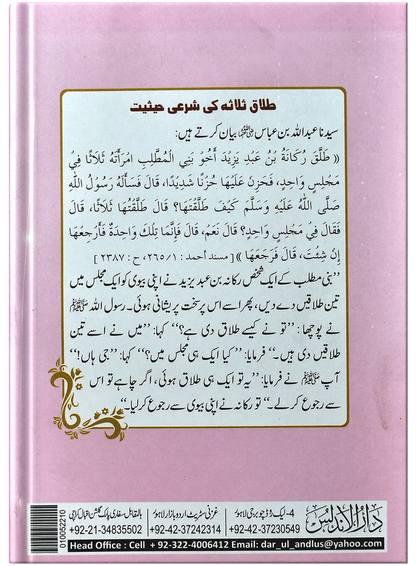 طلاق ثلاثہ کی شرعی حیثیت
سیدنا عبداللہ بن عباس رضی اللہ عنہما بیان کرتے ہیں:
« طَلَّقَ رُكَانَةُ بْنُ عَبْدِ يَزِيدَ أَخُو بَنِي الْمُطَّلِبِ امْرَأَتَهُ ثَلَاثًا فِي
مَجْلِسٍ وَاحِدٍ، فَحَزِنَ عَلَيْهَا حُزْنًا شَدِيدًا، قَالَ فَسَأَلَهُ رَسُولُ اللّٰهِ
صَلَّى اللّٰهُ عَلَيْهِ وَسَلَّمَ كَيْفَ طَلَّقْتَهَا؟ قَالَ طَلَّقْتُهَا ثَلَاثًا، قَالَ،
فَقَالَ فِي مَجْلِسٍ وَاحِدٍ؟ قَالَ نَعَمْ، قَالَ فَإِنَّمَا تِلْكَ وَاحِدَةٌ فَأَرْجِعْهَا
إِنْ شِئْتَ، قَالَ فَرَجَعَهَا » [ مسند أحمد : ١/٢٦٥، ح : ٢٣٨٧ ]
”بنی مطلب کے ایک شخص رکانہ بن عبد یزید نے اپنی بیوی کو ایک مجلس میں
تین طلاقیں دے دیں، پھر اسے اس پر سخت پریشانی ہوئی۔ رسول اللہ ﷺ
نے پوچھا : ”تو نے کیسے طلاق دی ہے؟“ کہا: ”میں نے اسے تین
طلاقیں دی ہیں۔“ فرمایا: ”کیا ایک ہی مجلس میں؟“ کہا: ”جی ہاں!“
آپ ﷺ نے فرمایا: ”یہ تو ایک ہی طلاق ہوئی، اگر چاہے تو اس
سے رجوع کر لے۔“ تو رکانہ نے اپنی بیوی سے رجوع کر لیا۔“
دارالاندلس
4- لیک روڈ چوبرجی لاہور
+92-42-37230549
غزنی سٹریٹ اردو بازار لاہور
+92-42-37242314
بالمقابل سفاری پارک گلشن اقبال کراچی
+92-21-34835502
Head Office : Cell + 92-322-4006412 Email: dar_ul_andlus@yahoo.com
010052210